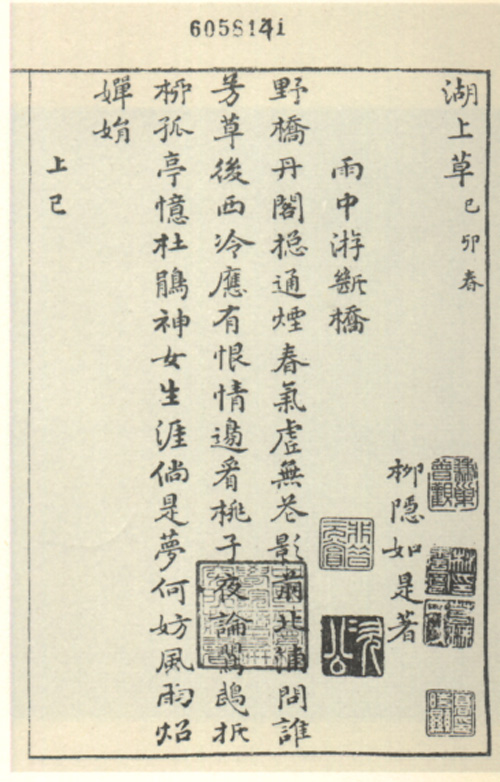 6058141
湖上草 己卯春
柳隱如是著
雨中游斷橋
野橋丹閣捴通煙春氣虛無花影前北浦問誰
芳草後西泠應有恨情邊看桃子夜論鸚鵡折
柳孤亭憶杜鵑神女生涯倘是夢何妨風雨炤
嬋娟
上巳